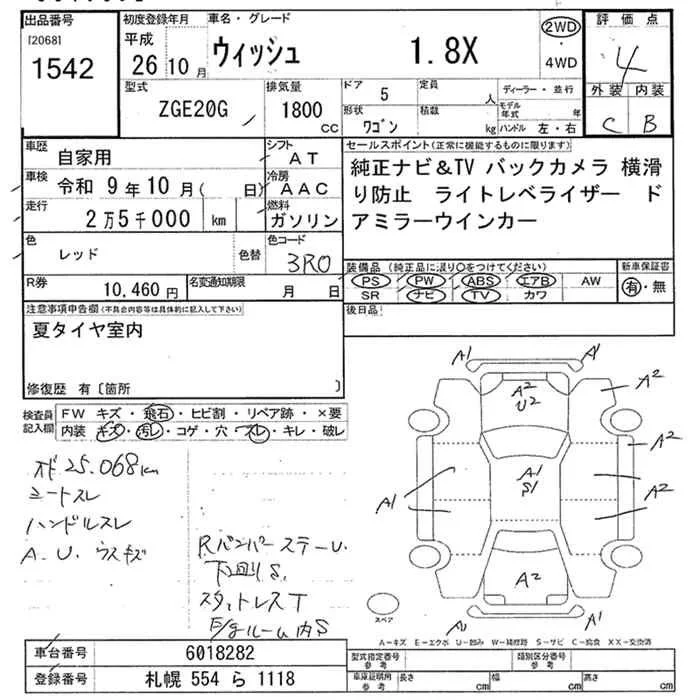 出品番号
[2068]
1542
初度登録年月
平成
26 10 月
車名・グレード
ウィッシュ 1.8X
2WD
・
4WD
評価点
4
外装 内装
C B
型式
ZGE20G
排気量
1800 CC
ドア 5
形状 ワゴン
定員 人
積載 kg
ディーラー・並行
モデル年式 年
ハンドル 左・右
車歴 自家用
シフト AT
車検 令和 9年 10月 ( 日)
冷房 AAC
走行 2万5千000 km
燃料 ガソリン
色 レッド
色替
色コード 3R0
R券 10,460 円
名変通知期限 月 日
セールスポイント(正常に機能するものに限ります)
純正ナビ&TV バックカメラ 横滑
り防止 ライトレベライザー ド
アミラーウインカー
装備品 (純正品に限り○をつけてください)
PS PW ABS エアB AW
SR ナビ TV カワ
新車保証書
有・無
後日品
注意事項申告欄(不具合内容等は具体的に記入して下さい)
夏タイヤ室内
修復歴 有〔箇所 〕
検査員記入欄
FW キズ・飛石・ヒビ割・リペア跡・×要
内装 キズ・汚レ・コゲ・穴・スレ・キレ・破レ
オド25.068km
シートスレ
ハンドルスレ
A.U.ウスキズ
Rバンパーステー U.
下回り S.
スタットレスT
E/gルーム内S
A1 A1
A2
U2
A2
A2
A1
S1
A1
A2
A2
A1
スペア
A-キズ E-エクボ U-凹み W-補修跡 S-サビ C-腐食 XX-交換済
車台番号 6018282
登録番号 札幌 554 ら 1118
型式指定番号 参考
類別区分番号 参考
車庫証明用 参考
長さ cm 幅 cm 高さ cm